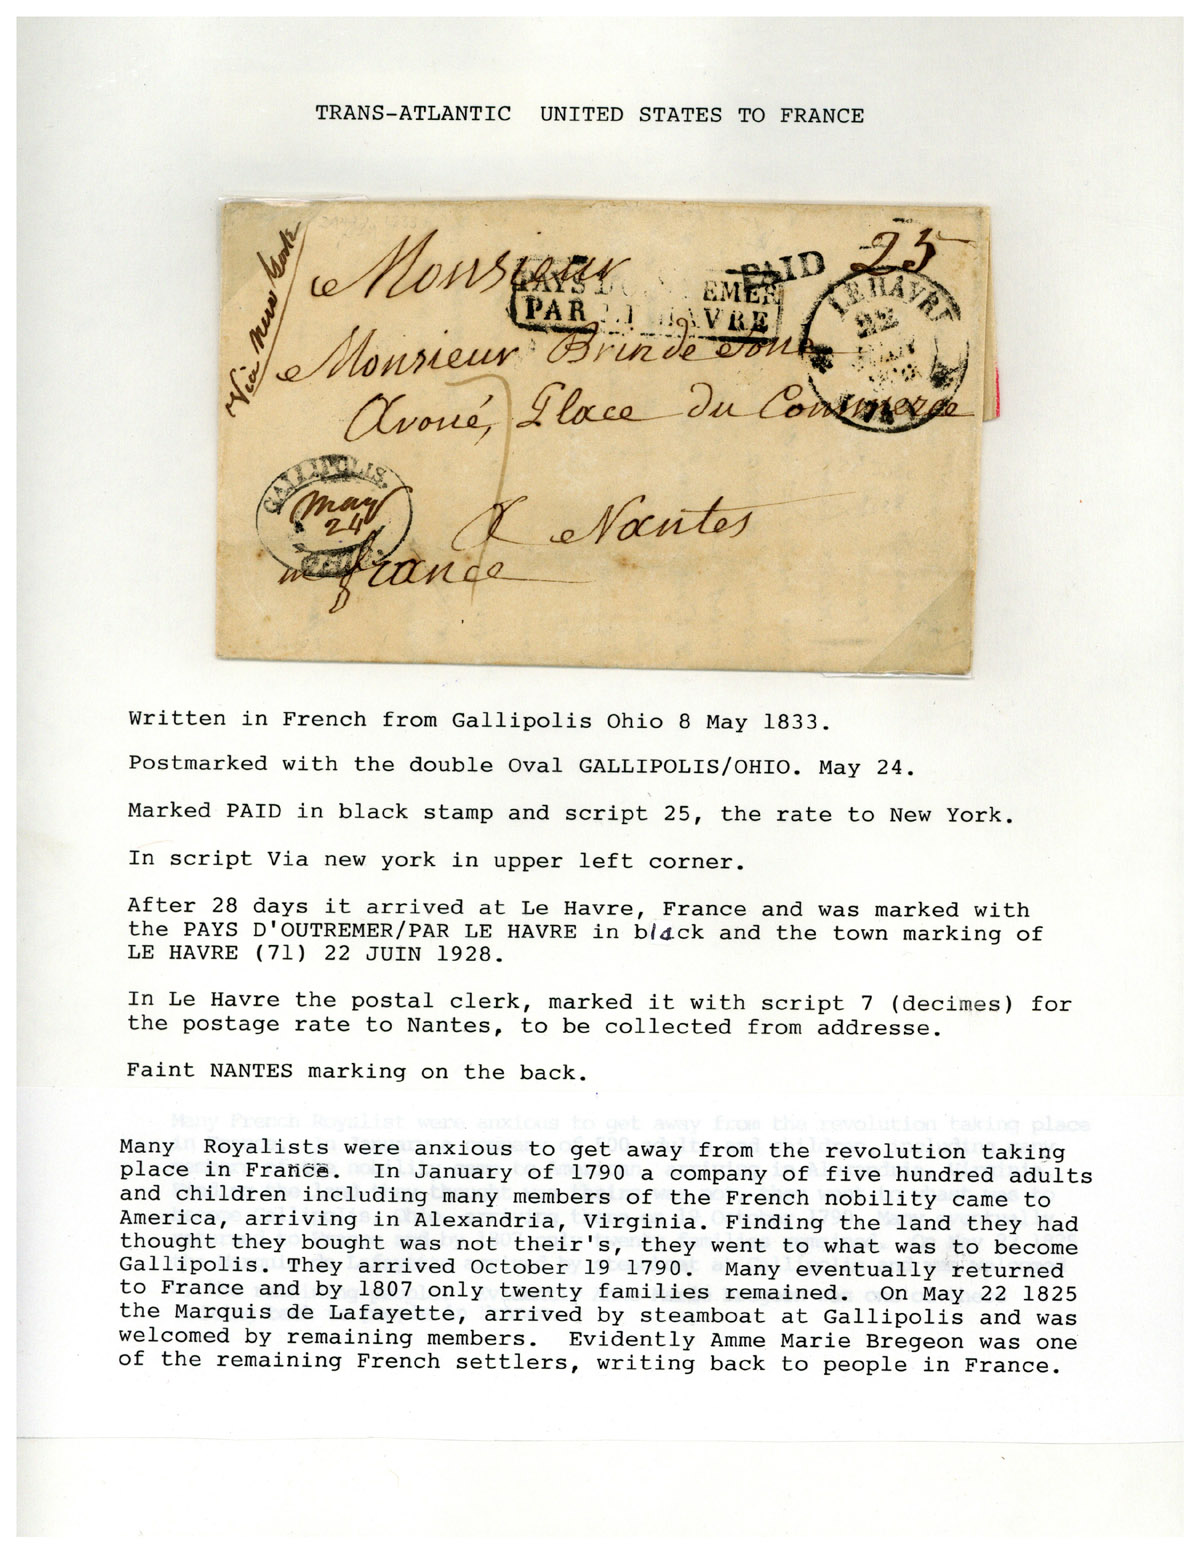 TRANS-ATLANTIC UNITED STATES TO FRANCE
Via new york
25
PAID
Monsieur
PAYS D' EMER
PAR LE HAVRE
LE HAVRE
22
Monsieur Brin de
Avoué, Place du Commerce
7
GALLIPOLIS.
May
24
OHIO.
a Nantes
in france
Written in French from Gallipolis Ohio 8 May 1833.
Postmarked with the double Oval GALLIPOLIS/OHIO. May 24.
Marked PAID in black stamp and script 25, the rate to New York.
In script Via new york in upper left corner.
After 28 days it arrived at Le Havre, France and was marked with
the PAYS D'OUTREMER/PAR LE HAVRE in black and the town marking of
LE HAVRE (71) 22 JUIN 1928.
In Le Havre the postal clerk, marked it with script 7 (decimes) for
the postage rate to Nantes, to be collected from addresse.
Faint NANTES marking on the back.
Many French Royalist were anxious to get away from the revolution taking place
Many Royalists were anxious to get away from the revolution taking
place in France. In January of 1790 a company of five hundred adults
and children including many members of the French nobility came to
America, arriving in Alexandria, Virginia. Finding the land they had
thought they bought was not their's, they went to what was to become
Gallipolis. They arrived October 19 1790. Many eventually returned
to France and by 1807 only twenty families remained. On May 22 1825
the Marquis de Lafayette, arrived by steamboat at Gallipolis and was
welcomed by remaining members. Evidently Amme Marie Bregeon was one
of the remaining French settlers, writing back to people in France.